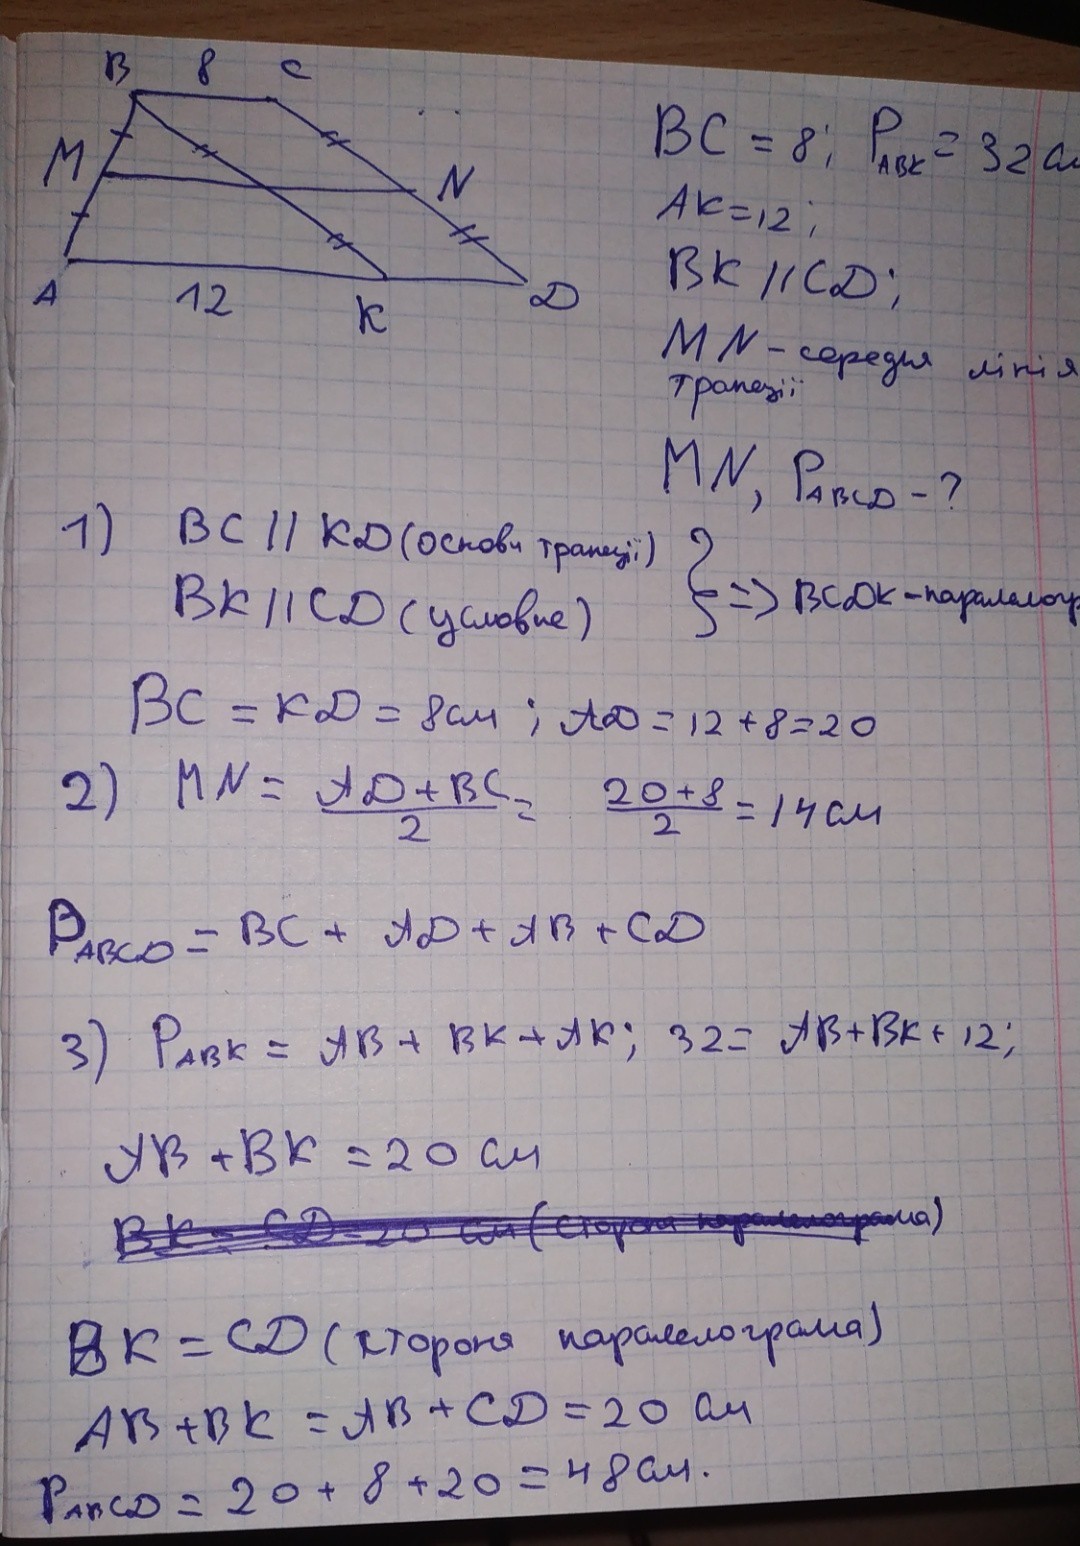 B 8 C
M N
A 12 K D
BC = 8; P_ABK = 32 см
AK = 12;
BK // CD;
MN - середня лінія
трапеції
MN, P_ABCD - ?
1) BC // KD (основи трапеції)
BK // CD (условие)
} => BCDK - паралелогр
BC = KD = 8 см ; AD = 12 + 8 = 20
2) MN = (AD + BC)/2 = (20 + 8)/2 = 14 см
P_ABCD = BC + AD + AB + CD
3) P_ABK = AB + BK + AK; 32 = AB + BK + 12;
AB + BK = 20 см
BK = CD = 20 см (сторони паралелограма)
BK = CD (стороня паралелограма)
AB + BK = AB + CD = 20 см
P_ABCD = 20 + 8 + 20 = 48 см.